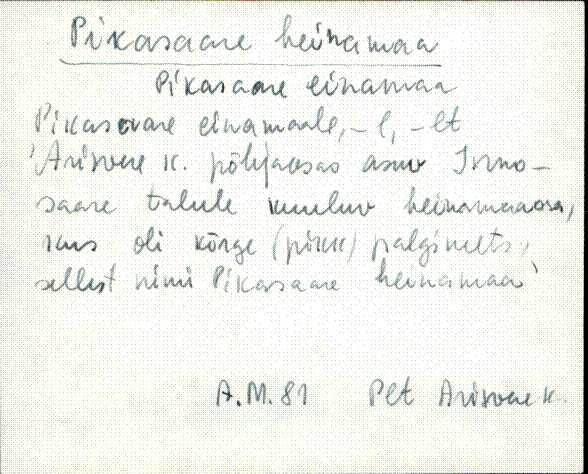 Pikasaare heinamaa
Pikasaare einamaa
Pikasaare einamaale, -l, -lt
'Arisvere k. põhjaosas asuv Irmo-
saare talule kuuluv heinamaaosa,
kus oli kõrge (pikk) palgimets,
sellest nimi Pikasaare heinamaa'
A.M. 81 Plt Arisvere k.